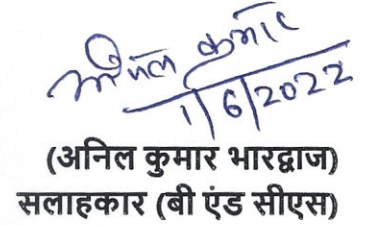 अनिल कुमार
1/6/2022
(अनिल कुमार भारद्वाज)
सलाहकार (बी एंड सीएस)